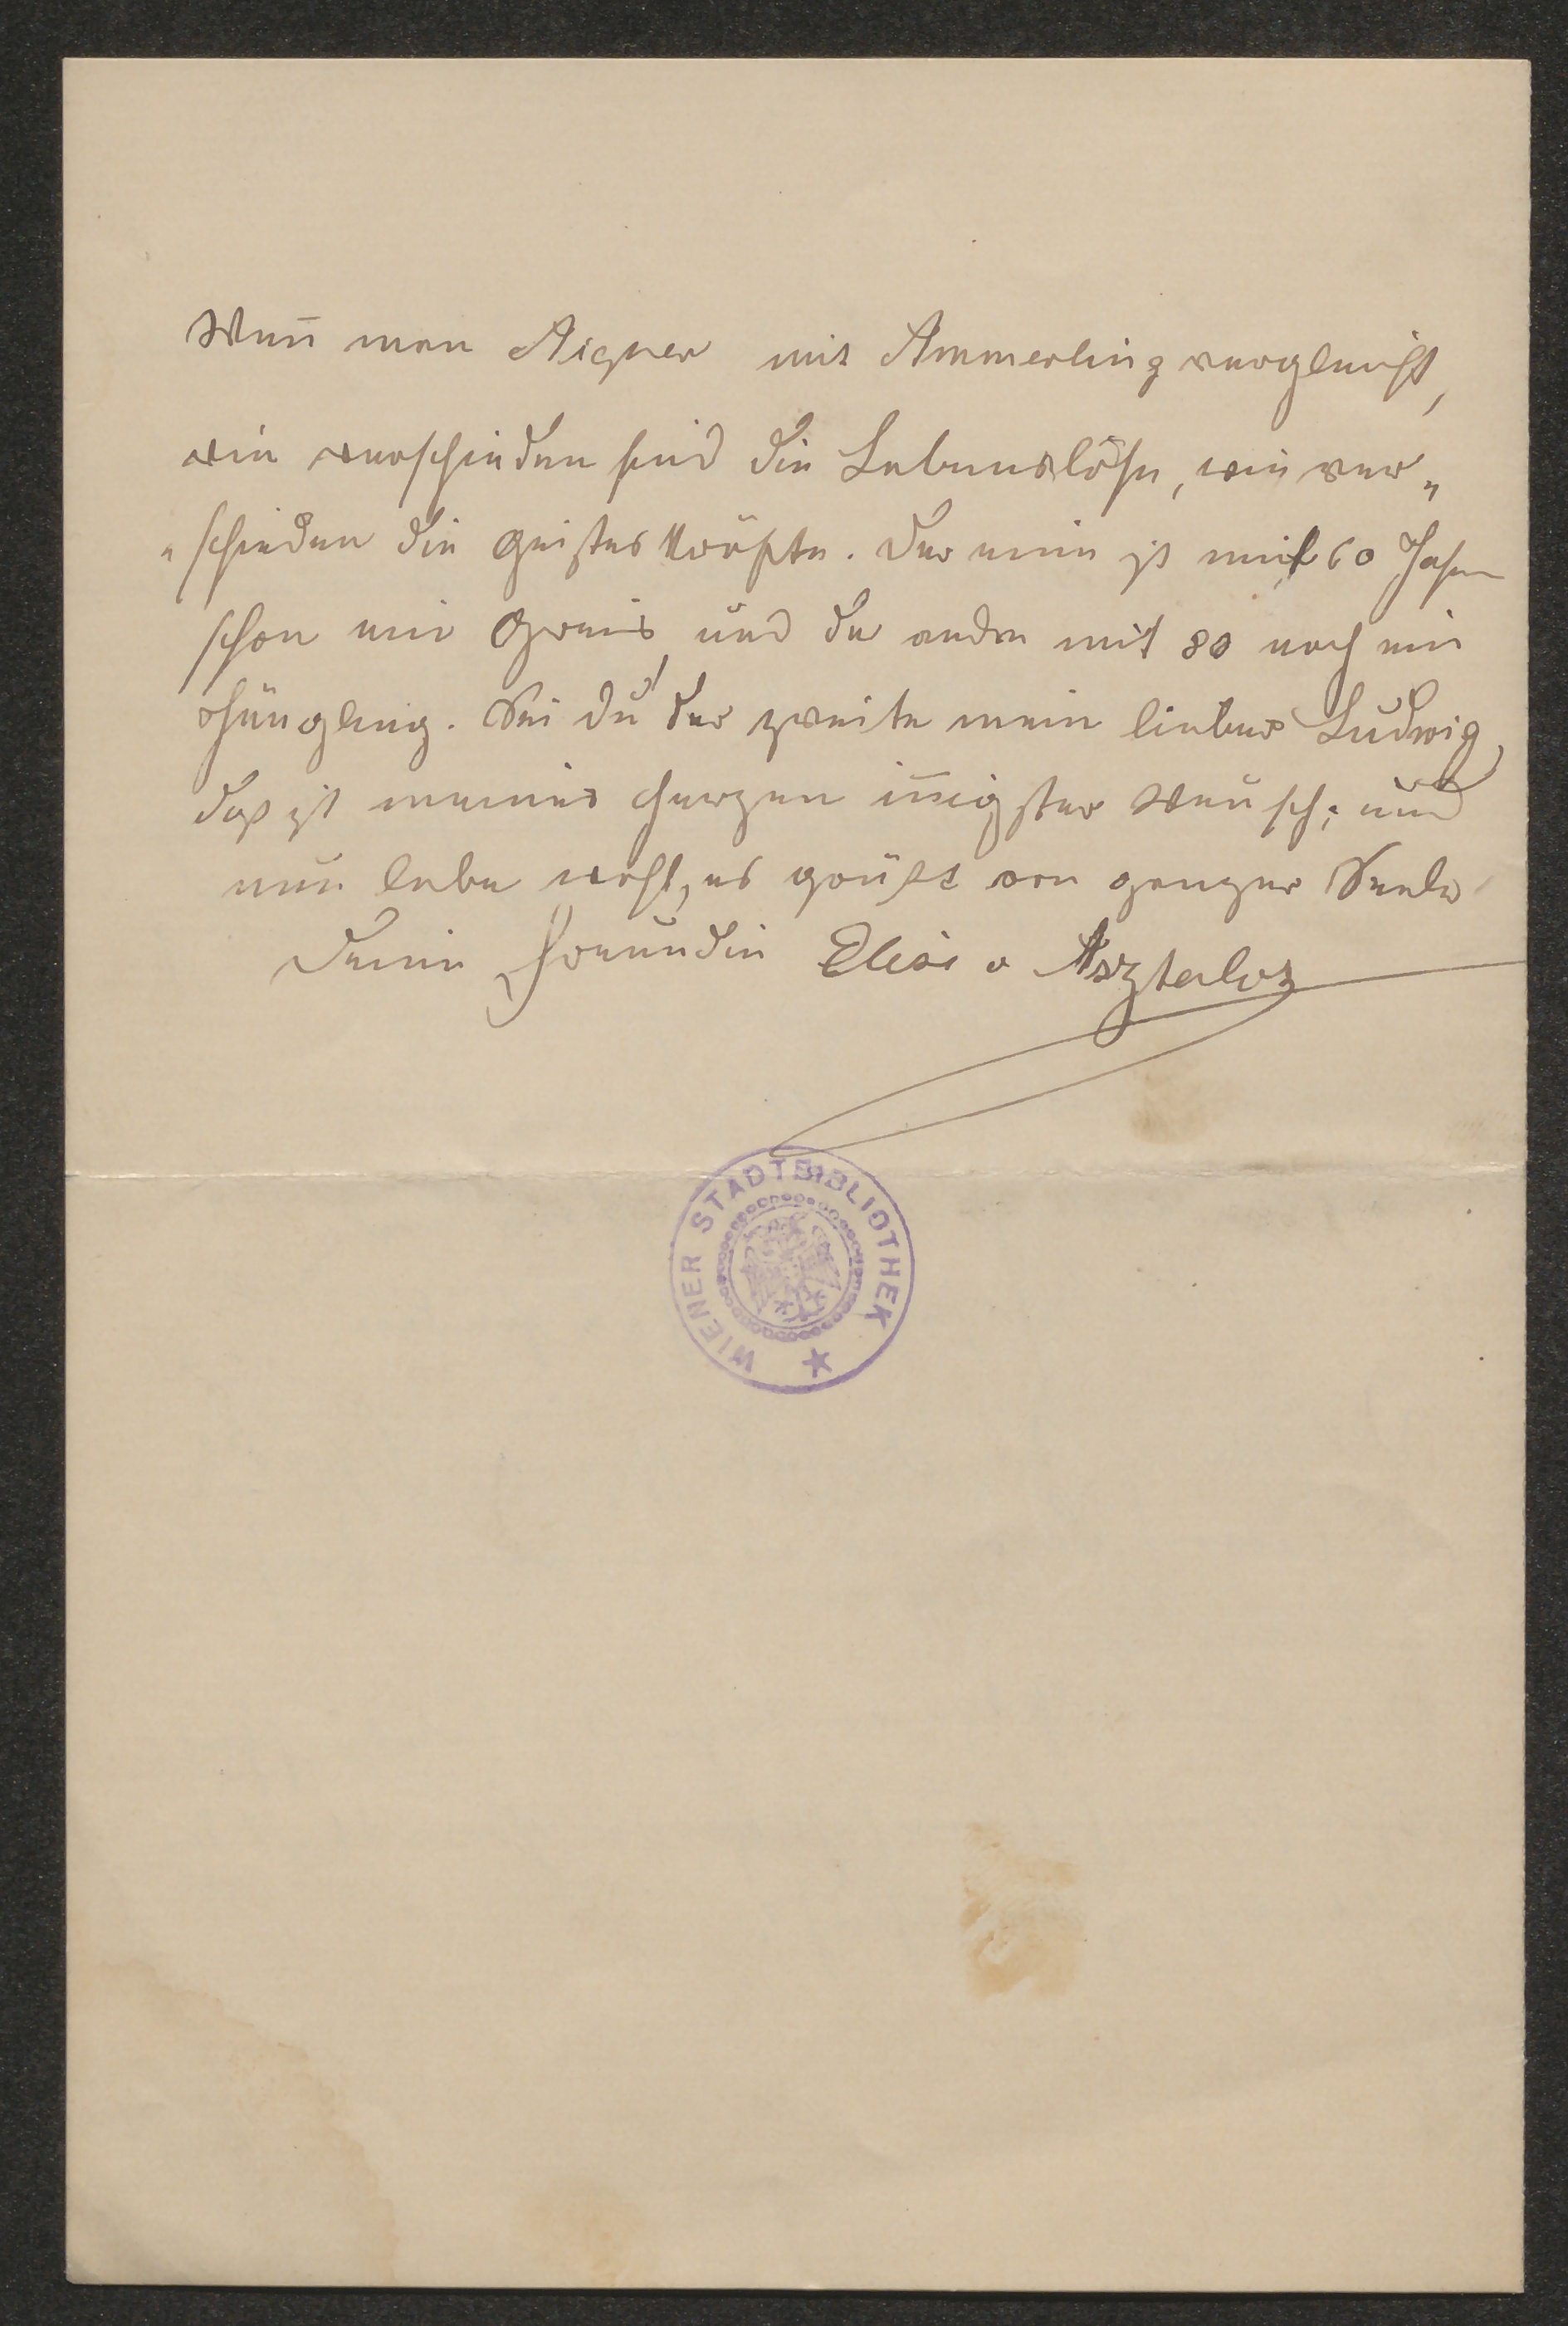 Wen̄ man Aigner mit Ammerling vergleicht,
wie verschieden sind die Lebenslose, wie ver„
„schieden die Geisteskräfte. Der eine ist mit 60 Jahren
schon ein Greis, und der andre mit 80 noch ein
Jüngling. Sei du der zweite mein lieber Ludwig,
das ist meines Herzen in̄igster Wunsch; und
nun lebe wohl, es grüßt von ganzer Seele
Deine Freundin Elise v Asztalos
WIENER STADTBIBLIOTHEK